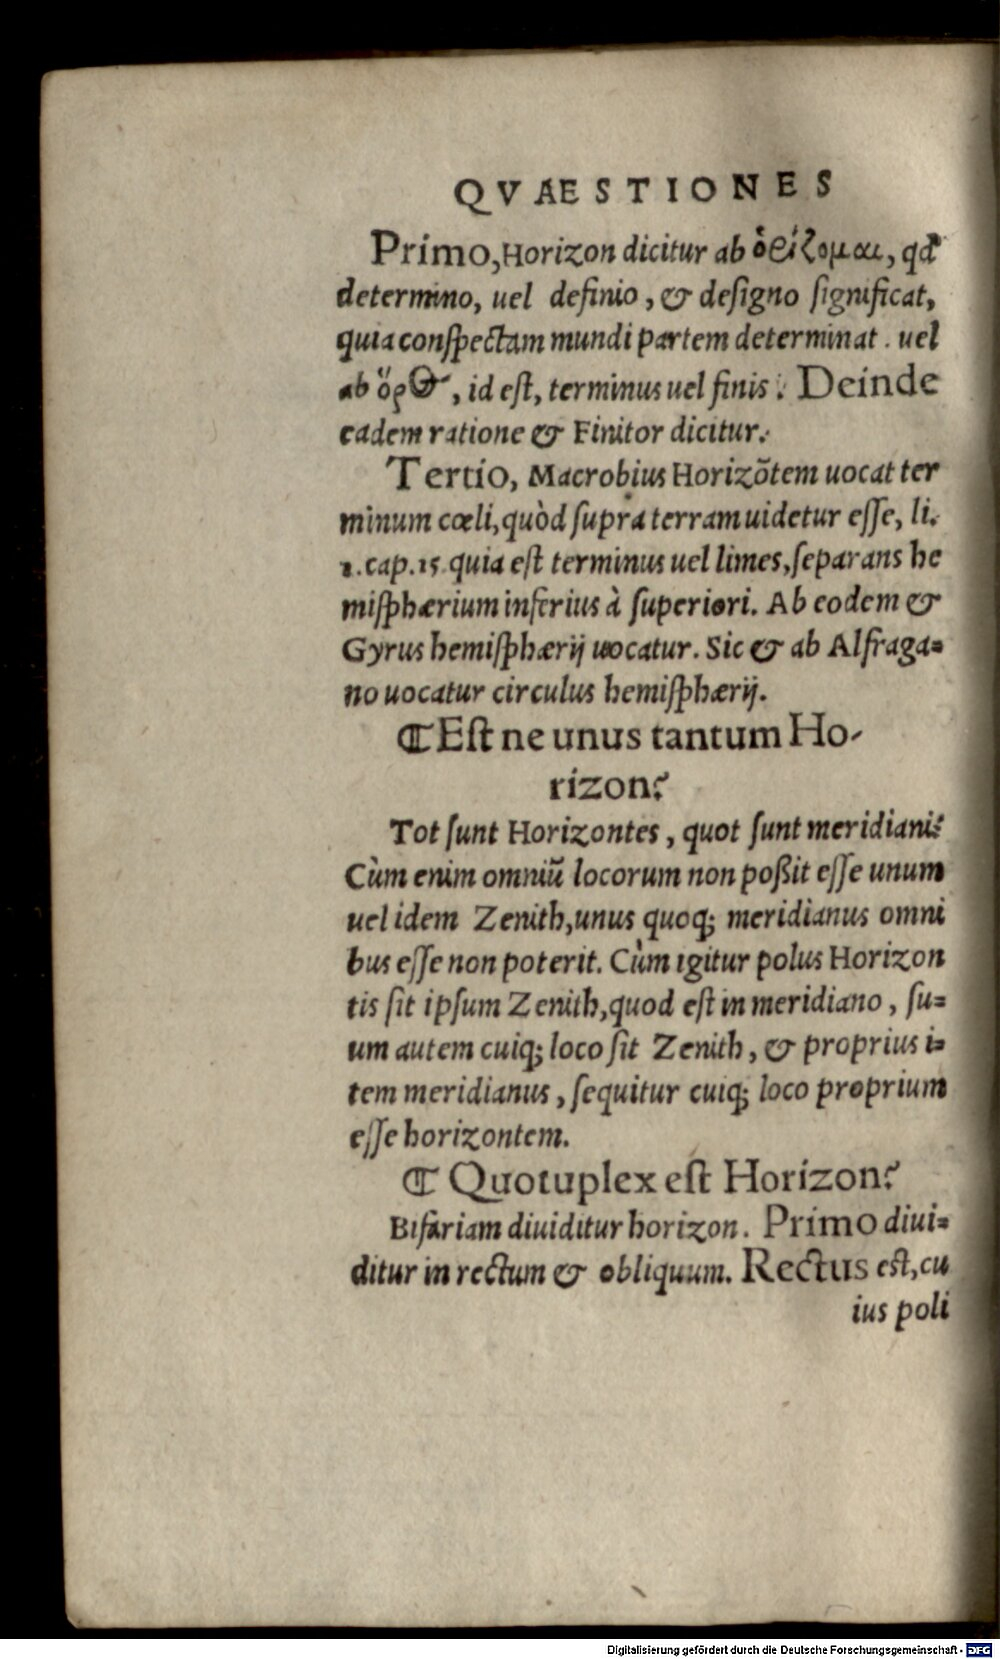 QVAESTIONES
Primo, Horizon dicitur ab ὁρίζομαι, qđ
determino, uel definio, & deſigno ſignificat,
quia conſpectam mundi partem determinat. uel
ab ὅρος, id eſt, terminus uel finis: Deinde
eadem ratione & Finitor dicitur.
Tertio, Macrobius Horizõtem uocat ter
minum cœli, quòd ſupra terram uidetur eſſe, li.
1. cap. 15. quia eſt terminus uel limes, ſeparans he
miſphærium inferius à ſuperiori. Ab eodem &
Gyrus hemiſphærij uocatur. Sic & ab Alfraga=
no uocatur circulus hemiſphærij.
¶ Eſt ne unus tantum Ho-
rizon?
Tot ſunt Horizontes, quot ſunt meridiani?
Cùm enim omniũ locorum non poßit eſſe unum
uel idem Zenith, unus quoq; meridianus omni
bus eſſe non poterit. Cùm igitur polus Horizon
tis ſit ipſum Zenith, quod eſt in meridiano, ſu=
um autem cuiq; loco ſit Zenith, & proprius i=
tem meridianus, ſequitur cuiq; loco proprium
eſſe horizontem.
¶ Quotuplex eſt Horizon?
Bifariam diuiditur horizon. Primo diui=
ditur in rectum & obliquum. Rectus eſt, cu
ius poli
Digitalisierung gefördert durch die Deutsche Forschungsgemeinschaft - DFG